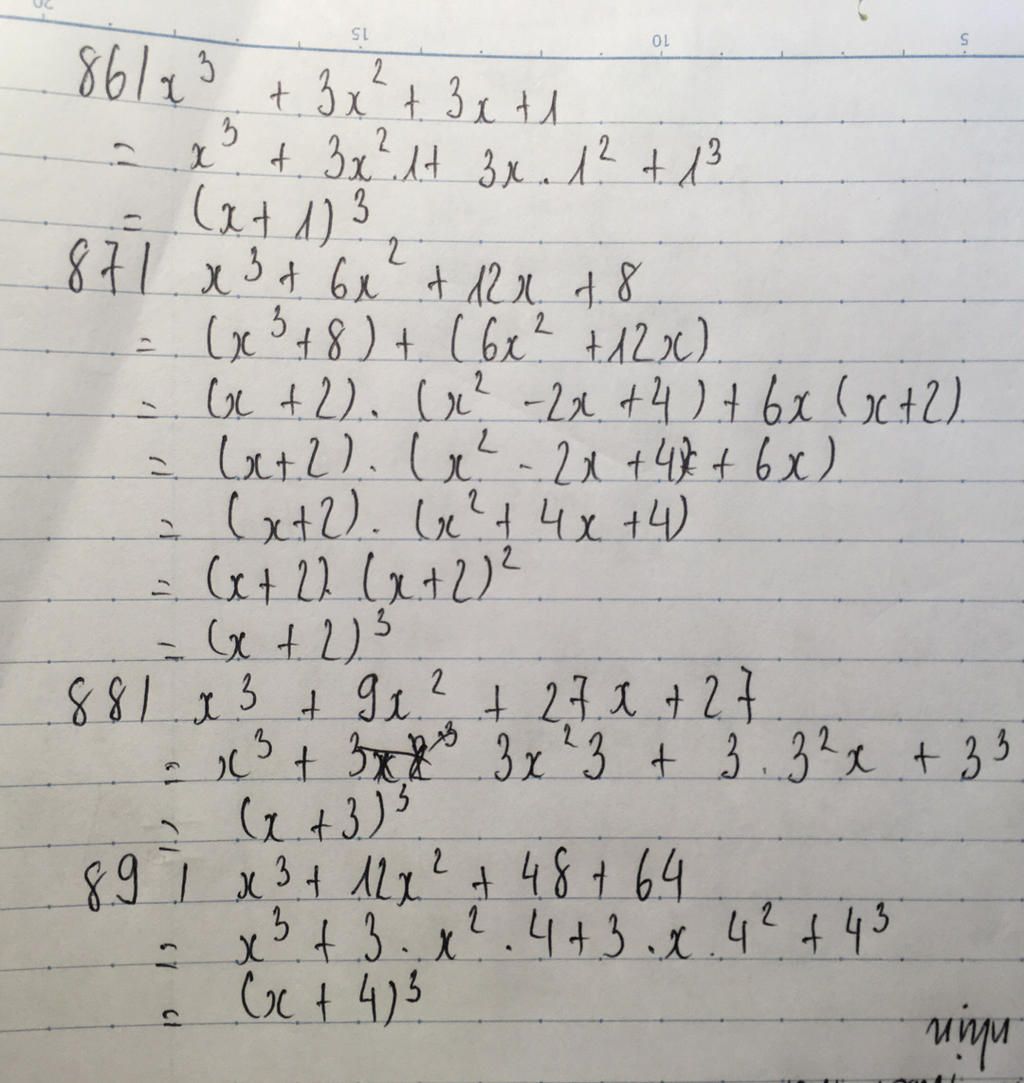 86/ x³ + 3x² + 3x + 1
= x³ + 3x².1 + 3x . 1² + 1³
= (x + 1)³
87/ x³ + 6x² + 12x + 8
= (x³ + 8) + (6x² + 12x)
= (x + 2) . (x² - 2x + 4) + 6x (x + 2)
= (x + 2) . (x² - 2x + 4 + 6x)
= (x + 2) . (x² + 4x + 4)
= (x + 2) . (x + 2)²
= (x + 2)³
88/ x³ + 9x² + 27x + 27
= x³ + 3x²3 + 3 . 3²x + 3³
= (x + 3)³
89/ x³ + 12x² + 48 + 64
= x³ + 3 . x² . 4 + 3 . x . 4² + 4³
= (x + 4)³